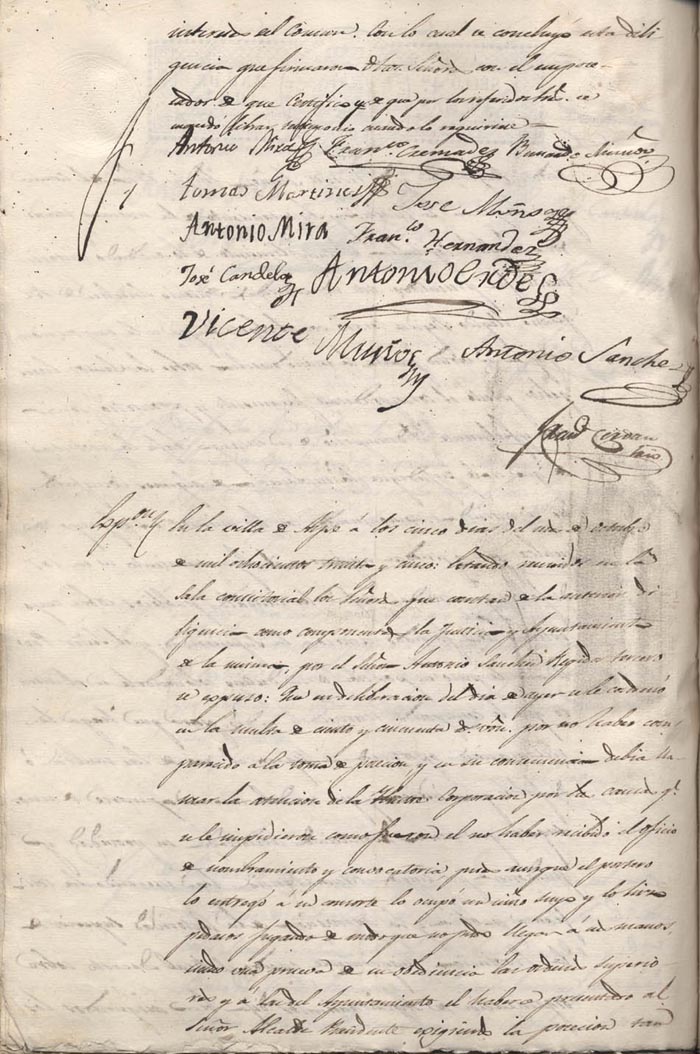 interes del Comun. Con lo cual se concluyó esta dili
gencia que firmaron dhos. Señores con el
de que Certifico y de que por los referidos Sres. se
mandó librar testimonio cuando lo
Antonio Mira Franco. Cremades Bernardo
Tomas Martinez Jose Muñoz
Antonio Mira Franco. Hernandez
José Candela Antonio
Vicente Muñoz Antonio Sanchez
Franco.
Esposon. En la villa de Aspe á los cinco dias del mes de octubre
de mil ochocientos treinta y cinco: Estando reunidos en la
sala consistorial los Señores que constan de la anterior di
ligencia como componentes la Justicia y Ayuntamiento
de la misma, por el Señor Antonio Sanchez Regidor tercero
se espuso: Que en deliberacion del dia de ayer se le condenó
en la multa de ciento y cincuenta rs. von. por no haber com
parecido á la toma de posesion y en su consecuencia debia lla
mar la atencion de la Corporacion por la causa qe.
se le impidieron como fueron el no haber recibido el oficio
de nombramiento y convocatoria pues aunque el portero
lo entregó a su consorte lo ocupó un niño suyo y lo hizo
pedazos jugando de modo que no pudo llegar á sus manos,
siendo una prueba de su obediencia á las ordenes superio
res y a las del Ayuntamiento el haberse presentado al
Señor Alcalde Presidente exigiendo la posesion tan